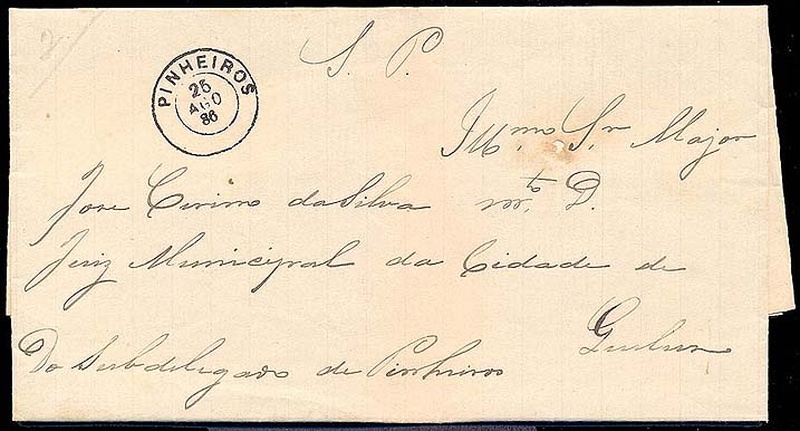 2
PINHEIROS
26
AGO
86
S. P.
Ill.mo Sr. Major
Jose Cirino da Silva m.to D.
Juiz Municipal da Cidade de
Do Subdelegado de Pinheiros